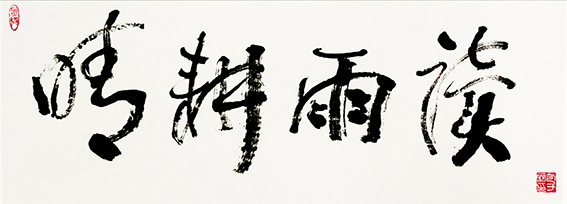 晴耕雨读